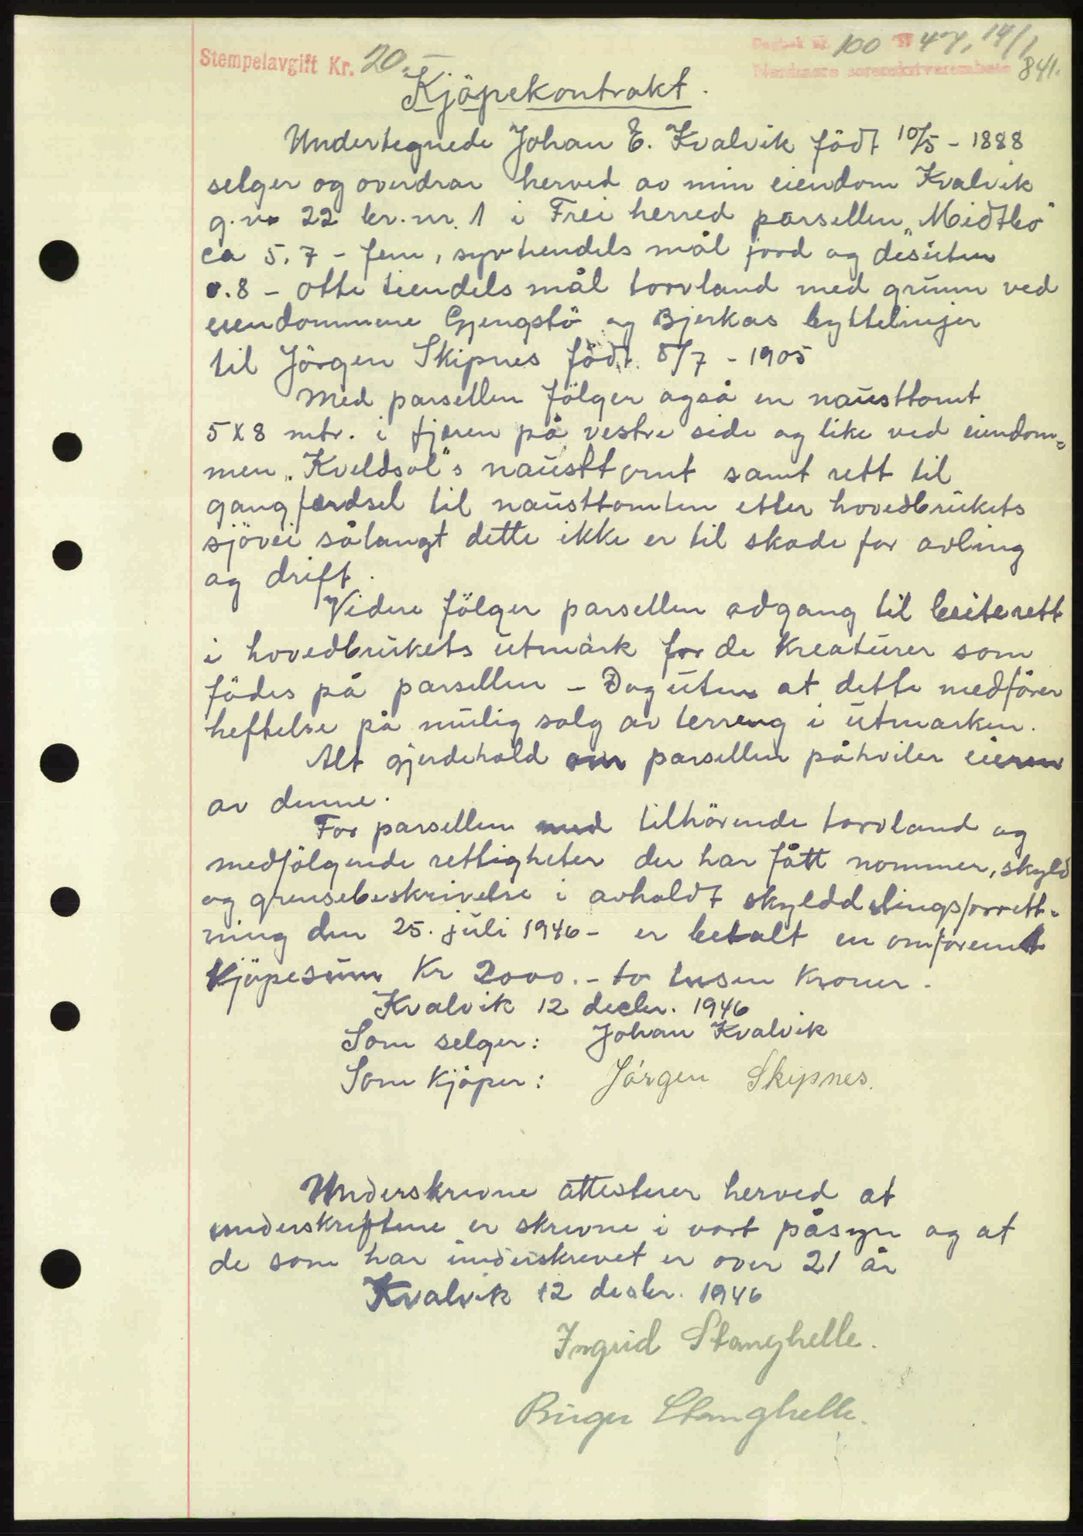 Stempelavgift Kr. 20.-
Dagbok nr. 100 19 47, 14/1
Nordmøre sorenskriverembete 841.
Kjöpekontrakt.
Undertegnede Johan E. Kvalvik födt 10/5 - 1888
selger og overdrar herved av min eiendom Kvalvik
g.nr 22 br.nr. 1 i Frei herred parsellen „Midtbö"
ca 5,7 - fem, syvtiendels mål jord og desuten
0.8 - otte tiendels mål torvland med grunn ved
eiendommene Gjengstö og Bjerkås byttelinjer
til Jörgen Skipnes födt 8/7 - 1905
Med parsellen fölger også en nausttomt
5 X 8 mtr. i fjæren på vestre side og like ved eiendom=
men „Kveldsol"s nausttomt samt rett til
gangferdsel til nausttomten etter hovedbrukets
sjövei sålangt dette ikke er til skade for avling
og drift.
Videre fölger parsellen adgang til beiterett
i hovedbrukets utmark for de kreaturer som
födes på parsellen - Dog uten at dette medförer
heftelse på mulig salg av terreng i utmarken.
Alt gjerdehold om parsellen påhviler eieren
av denne.
For parsellen med tilhörende torvland og
medfölgende rettigheter der har fått nommer, skyld
og grensebeskrivelse i avholdt skylddelingsforrett-
ning den 25. juli 1946 - er betalt en omforenet
kjöpesum Kr 2000.- to tusen kroner.
Kvalvik 12 decbr. 1946
Som selger: Johan Kvalvik
Som kjöper: Jörgen Skipnes.
Underskrevne attesterer herved at
underskriftene er skrevne i vort påsyn og at
de som har underskrevet er over 21 år
Kvalvik 12 desbr. 1946
Ingrid Stanghelle.
Birger Stanghelle.